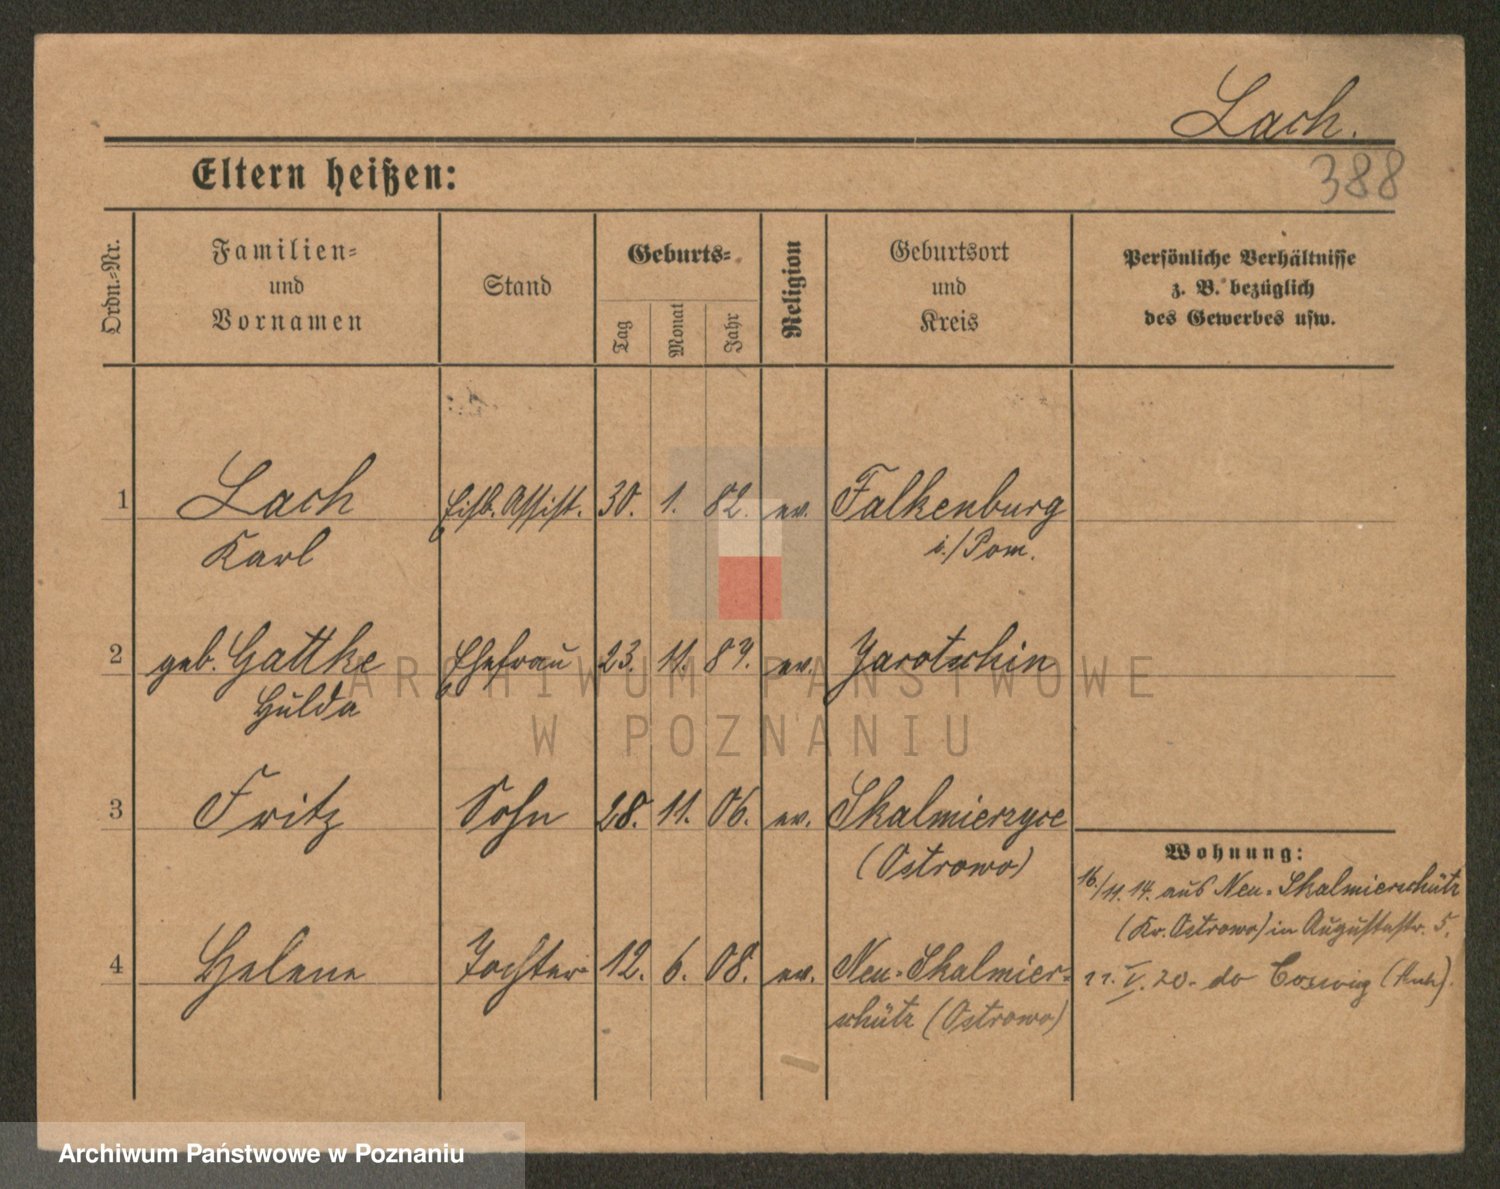 Lach.
388
Eltern heißen:
Ordn.-Nr.
Familien-
und
Vornamen
Stand
Geburts-
Tag
Monat
Jahr
Religion
Geburtsort
und
Kreis
Persönliche Verhältnisse
z. B. bezüglich
des Gewerbes usw.
1 Lach Eisb. Assist. 30. 1. 82. ev. Falkenburg
Karl i./Pom.
2 geb. Gattke Ehefrau 23. 11. 87. ev. Jarotschin
Hulda
3 Fritz Sohn 28. 11. 06. ev. Skalmierzyce
(Ostrowo)
4 Helene Tochter 12. 6. 08. ev. Neu-Skalmier-
schütz (Ostrowo)
Wohnung:
16./11. 14. aus Neu-Skalmierschütz
(Kr. Ostrowo) in Augustastr. 5.
11. V. 20. do Coswig (Anh).
ARCHIWUM PAŃSTWOWE
W POZNANIU
Archiwum Państwowe w Poznaniu